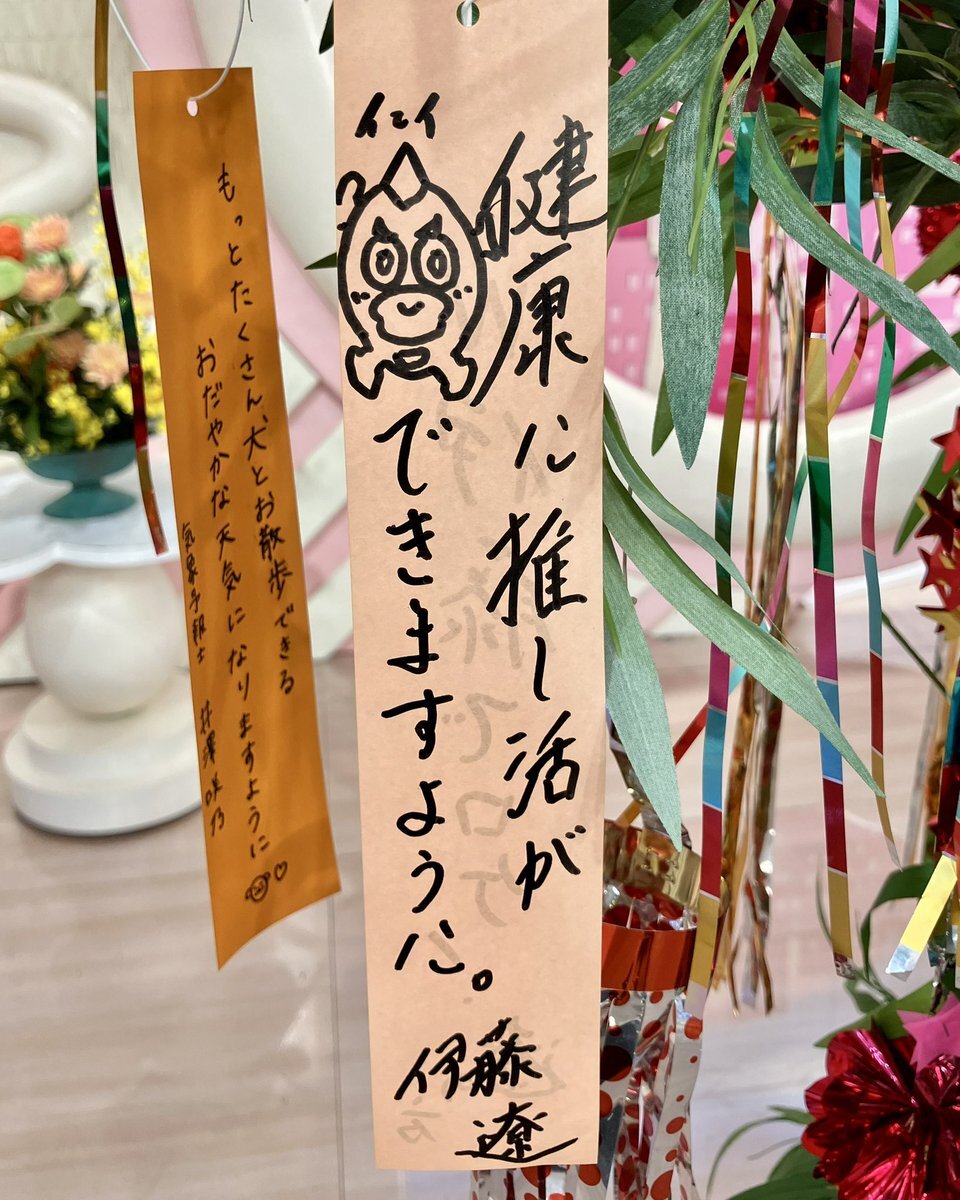 イエイ
健康に推し活が
できますように。
伊藤
遼
もっとたくさん、犬とお散歩できる
おだやかな天気になりますように
気象予報士 澤咲乃